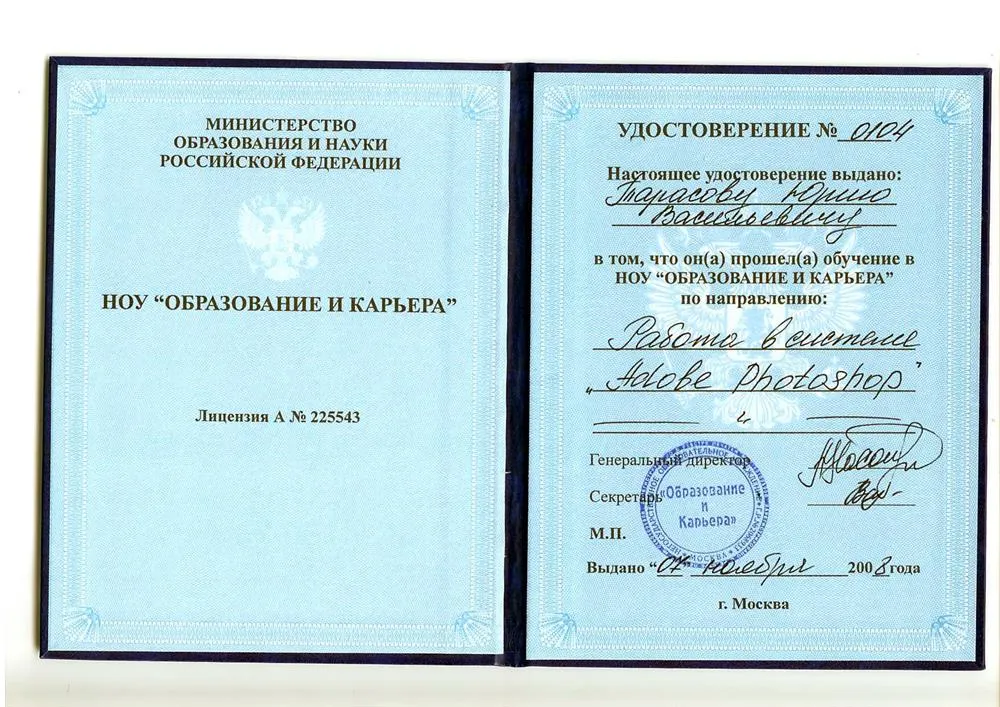 МИНИСТЕРСТВО
ОБРАЗОВАНИЯ И НАУКИ
РОССИЙСКОЙ ФЕДЕРАЦИИ
НОУ “ОБРАЗОВАНИЕ И КАРЬЕРА”
Лицензия А № 225543
УДОСТОВЕРЕНИЕ № 0104
Настоящее удостоверение выдано:
Тарасову Юрию
Васильевичу
в том, что он(а) прошел(а) обучение в
НОУ “ОБРАЗОВАНИЕ И КАРЬЕРА”
по направлению:
Работа в системе
„Adobe Photoshop”
Генеральный директор
Секретарь
«Образование
и
Карьера»
М.П.
Выдано “07 ноября 2008 года
г. Москва